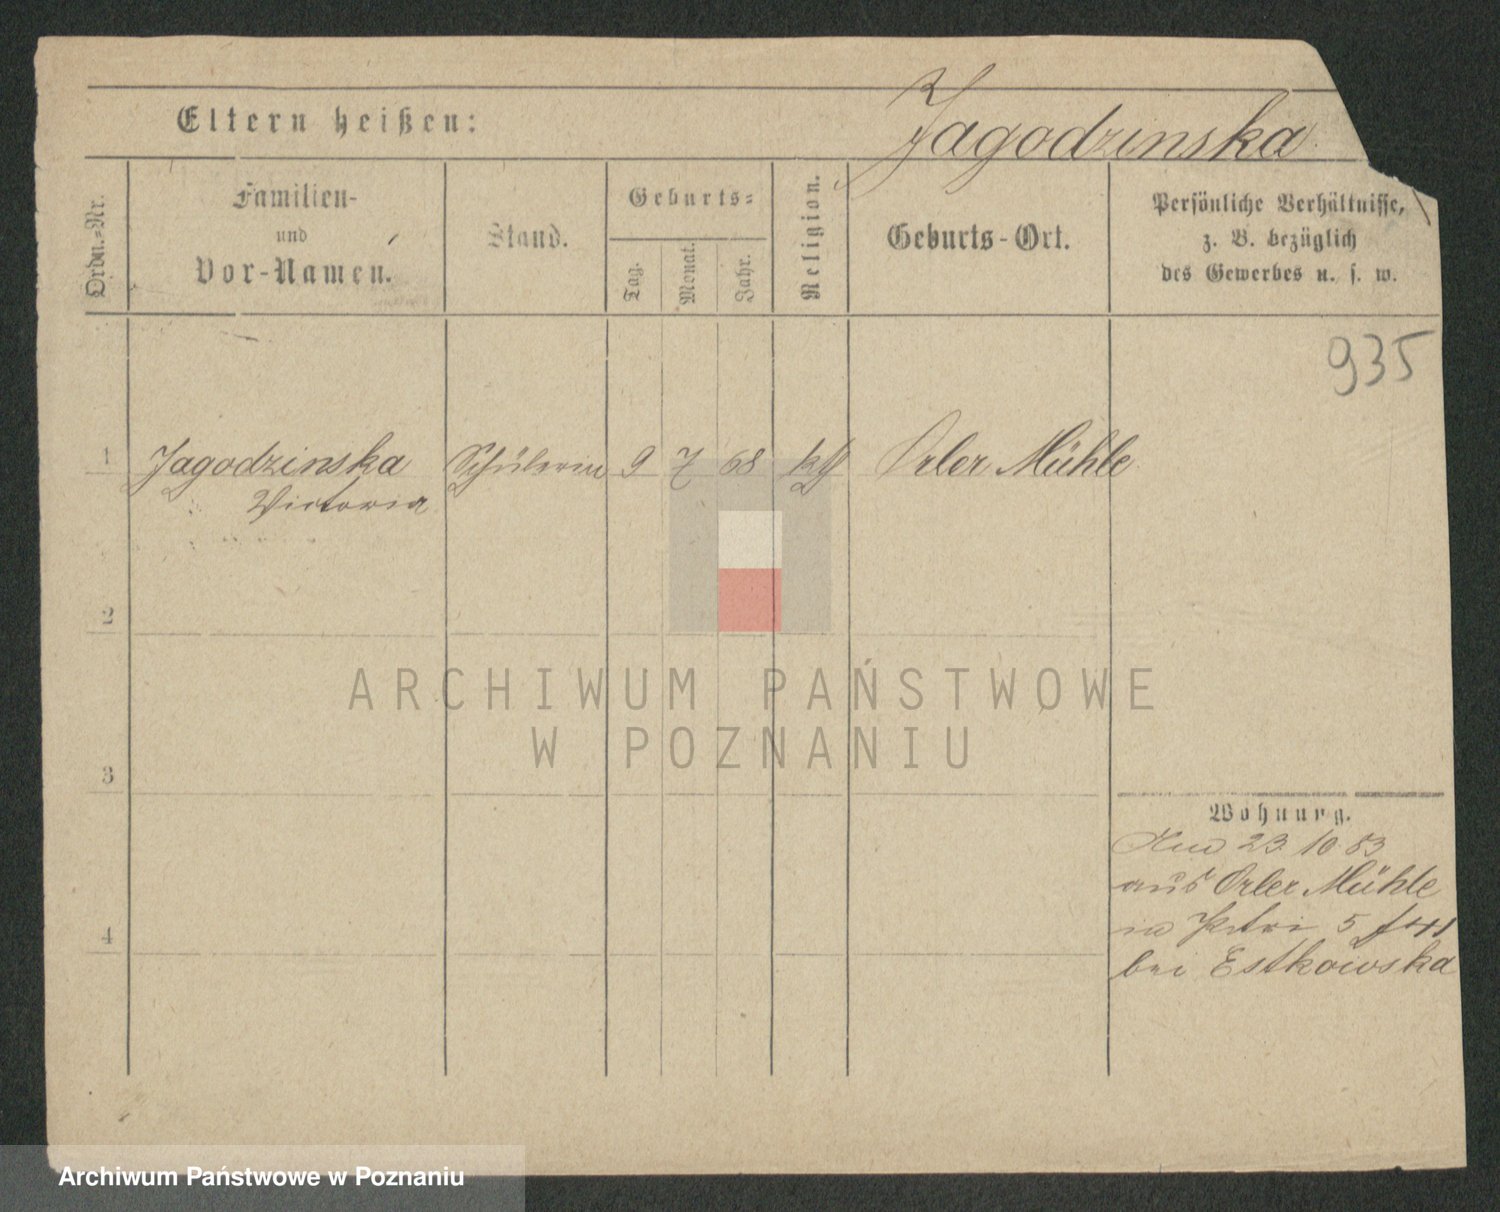 Eltern heißen:
Jagodzinska
Ordn.-Nr.
Familien-
und
Vor-Namen.
Stand.
Geburts-
Tag.
Monat.
Jahr.
Religion.
Geburts-Ort.
Persönliche Verhältnisse,
z. B. bezüglich
des Gewerbes u. s. w.
935
1 Jagodzinska Schülerin 9 7 68 Orler Mühle
Victoria
2
ARCHIWUM PAŃSTWOWE
W POZNANIU
3
Wohnung.
23. 10 83
aus Orler Mühle
in Petri 5
4
bei Estkowska
Archiwum Państwowe w Poznaniu